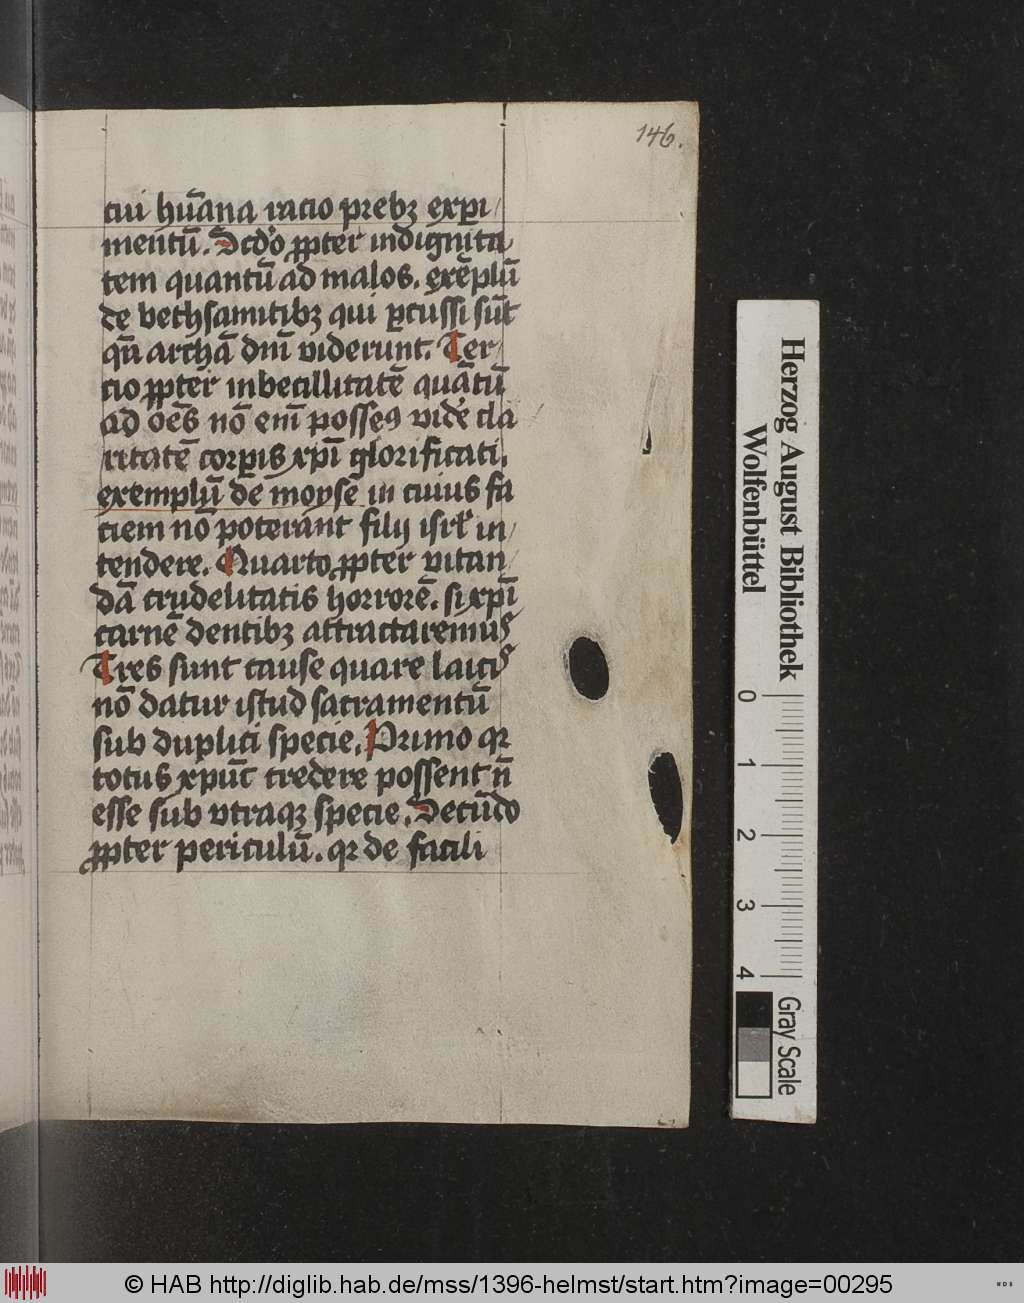 146.
cui hūana racio prebꝫ exꝑi
mentū. Scd̓o ꝓpter indignita
tem quantū ad malos. exēplū
de bethsamitibꝫ qui ꝑcussi sūt
qn̄ archā dn̄i viderunt. Ter
cio ꝓpter inbecillitatē quātū
ad oēs nō em̄ posseꝯ vid̓e cla
ritatē corꝑis xp̄i glorificati.
exemplū de moyse in cuius fa
ciem nō poterant filij isrl̓ in
tendere. Quarto ꝓpter vitan
dā crudelitatis horrorē. si xp̄i
carnē dentibꝫ attractaremus
Tres sunt cause quare laicis
nō datur istud sacramentū
sub duplici specie. Primo qꝛ
totus xp̄us credere possent n̄
esse sub vtraqꝫ specie. Secūdo
ꝓpter periculū. qꝛ de facili
Herzog August Bibliothek
Wolfenbüttel
0 1 2 3 4
Gray Scale
© HAB http://diglib.hab.de/mss/1396-helmst/start.htm?image=00295